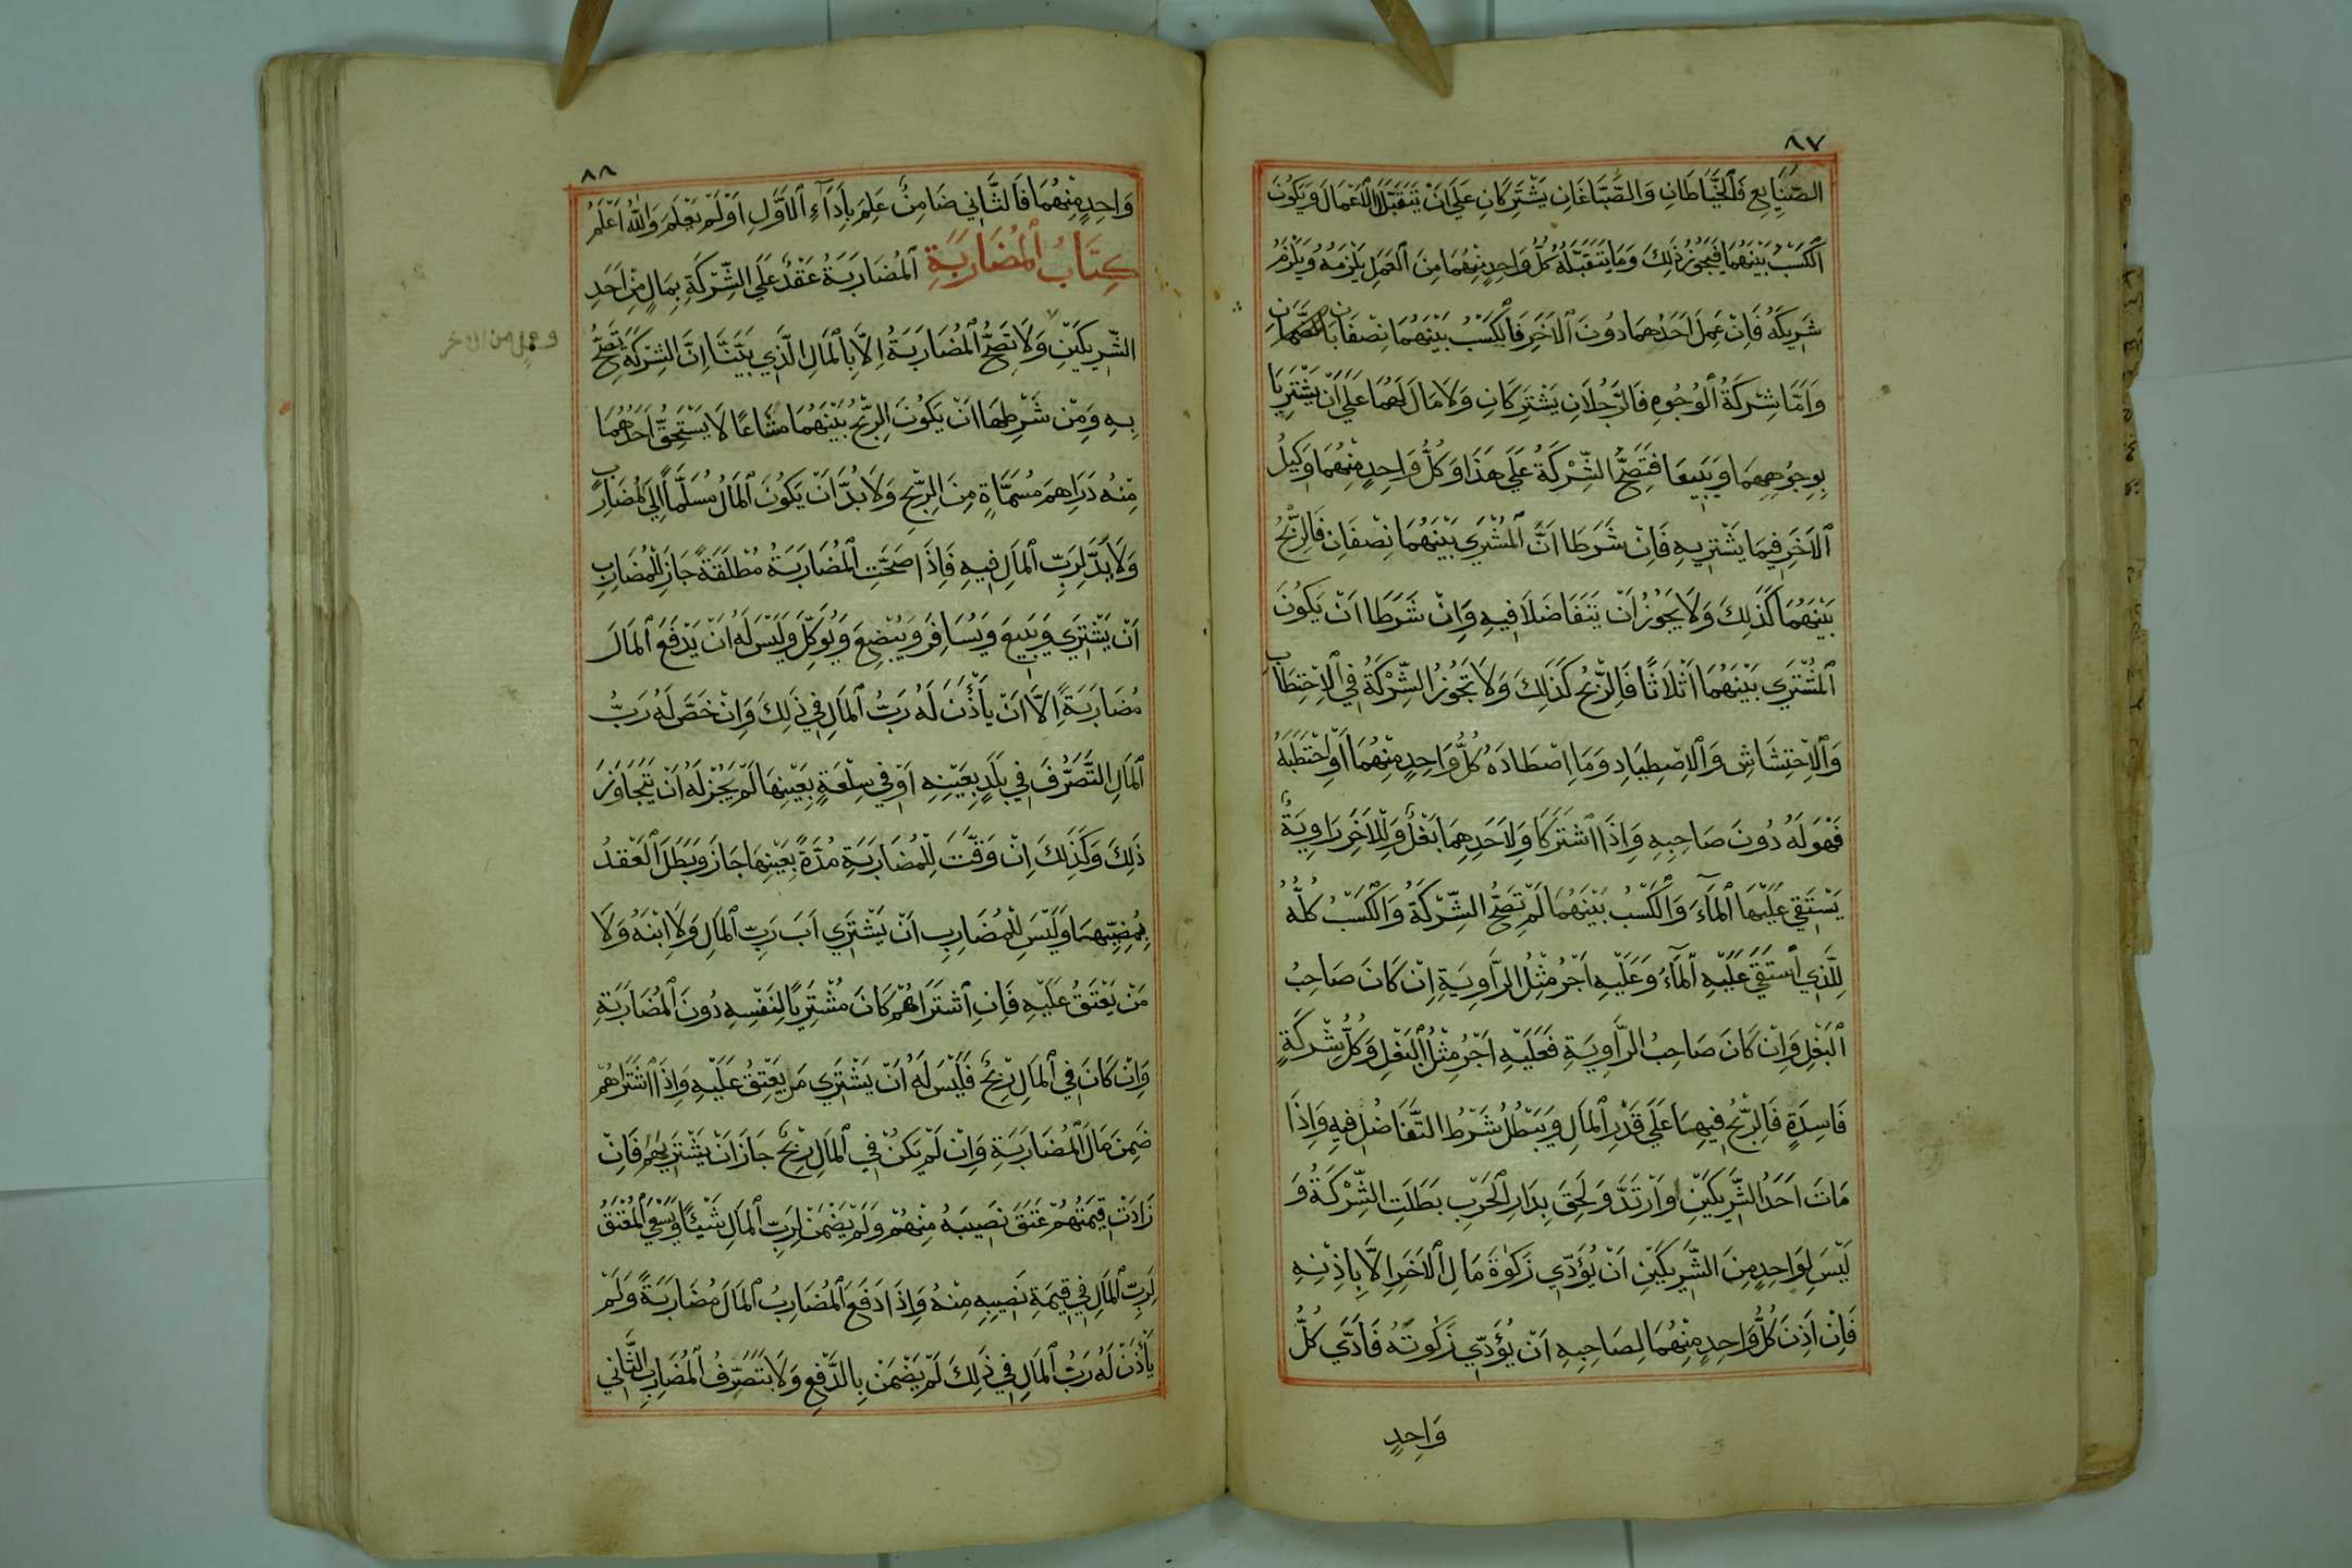 ٨٧
الصَّنَايِعِ فَالْخَيَّاطَانِ وَالصَّبَّاغَانِ يَشْتَرِكَانِ عَلَى اَنْ يَتَقَبَّلَا الْاَعْمَالَ وَيَكُونَ
الْكَسْبُ بَيْنَهُمَا فَيَجُوزُ ذٰلِكَ وَمَا يَتَقَبَّلُهُ كُلُّ وَاحِدٍ مِنْهُمَا مِنَ الْعَمَلِ يَلْزَمُهُ وَيَلْزَمُ
شَرِيكَهُ فَاِنْ عَمِلَ اَحَدُهُمَا دُونَ الْاٰخَرِ فَالْكَسْبُ بَيْنَهُمَا نِصْفَانِ
وَاَمَّا شِرْكَةُ الْوُجُوهِ فَالرَّجُلَانِ يَشْتَرِكَانِ وَلَا مَالَ لَهُمَا عَلَى اَنْ يَشْتَرِيَا
بِوُجُوهِهِمَا وَيَبِيعَا فَتَصِحُّ الشِّرْكَةُ عَلَى هَذَا وَكُلُّ وَاحِدٍ مِنْهُمَا وَكِيلُ
الْاٰخَرِ فِيمَا يَشْتَرِيهِ فَاِنْ شَرَطَا اَنَّ الْمُشْتَرَى بَيْنَهُمَا نِصْفَانِ فَالرِّبْحُ
بَيْنَهُمَا كَذٰلِكَ وَلَا يَجُوزُ اَنْ يَتَفَاضَلَا فِيهِ وَاِنْ شَرَطَا اَنْ يَكُونَ
الْمُشْتَرَى بَيْنَهُمَا اَثْلَاثًا فَالرِّبْحُ كَذٰلِكَ وَلَا تَجُوزُ الشِّرْكَةُ فِي الْاِحْتِطَابِ
وَالْاِحْتِشَاشِ وَالْاِصْطِيَادِ وَمَا اِصْطَادَهُ كُلُّ وَاحِدٍ مِنْهُمَا اَوْ اِحْتَطَبَهُ
فَهْوَ لَهُ دُونَ صَاحِبِهِ وَاِذَا اشْتَرَكَا وَلِاَحَدِهِمَا بَغْلٌ وَلِلْاٰخَرِ رَاوِيَةٌ
يَسْتَقِي عَلَيْهَا الْمَآءَ وَالْكَسْبُ بَيْنَهُمَا لَمْ تَصِحَّ الشِّرْكَةُ وَالْكَسْبُ كُلُّهُ
لِلَّذِي اسْتَقَى عَلَيْهِ الْمَآءَ وَعَلَيْهِ اَجْرُ مِثْلِ الرَّاوِيَةِ اِنْ كَانَ صَاحِبُ
الْبَغْلِ وَاِنْ كَانَ صَاحِبُ الرَّاوِيَةِ فَعَلَيْهِ اَجْرُ مِثْلِ الْبَغْلِ وَكُلُّ شِرْكَةٍ
فَاسِدَةٍ فَالرِّبْحُ فِيهَا عَلَى قَدْرِ الْمَالِ وَيَبْطُلُ شَرْطُ التَّفَاضُلِ فِيهِ وَاِذَا
مَاتَ اَحَدُ الشَّرِيكَيْنِ اَوْ اَرْتَدَّ وَلَحِقَ بِدَارِ الْحَرْبِ بَطَلَتِ الشِّرْكَةُ وَ
لَيْسَ لِوَاحِدٍ مِنَ الشَّرِيكَيْنِ اَنْ يُؤَدِّيَ زَكٰوةَ مَالِ الْاٰخَرِ اِلَّا بِاِذْنِهِ
فَاِنْ اَذِنَ كُلُّ وَاحِدٍ مِنْهُمَا لِصَاحِبِهِ اَنْ يُؤَدِّيَ زَكٰوتَهُ فَاَدَّى كُلُّ
وَاحِدٍ
٨٨
وَاحِدٍ مِنْهُمَا فَالثَّانِي ضَامِنٌ عَلِمَ بِاَدَآءِ الْاَوَّلِ اَوْ لَمْ يَعْلَمْ وَاللهُ اَعْلَمُ
كِتَابُ الْمُضَارَبَةِ الْمُضَارَبَةُ عَقْدٌ عَلَى الشِّرْكَةِ بِمَالٍ مِنْ اَحَدِ
الشَّرِيكَيْنِ وَلَا تَصِحُّ الْمُضَارَبَةُ اِلَّا بِالْمَالِ الَّذِي بَيَّنَّا اِنَّ الشِّرْكَةَ تَصِحُّ
وعمل من الاخر
بِهِ وَمِنْ شَرْطِهَا اَنْ يَكُونَ الرِّبْحُ بَيْنَهُمَا مَشَاعًا لَا يَسْتَحِقُّ اَحَدُهُمَا
مِنْهُ دَرَاهِمَ مُسَمَّاةٍ مِنَ الرِّبْحِ وَلَا بُدَّ اَنْ يَكُونَ الْمَالُ مُسَلَّمًا اِلَى الْمُضَارِبِ
وَلَا يَدَ لِرَبِّ الْمَالِ فِيهِ فَاِذَا صَحَّتِ الْمُضَارَبَةُ مُطْلَقَةً جَازَ لِلْمُضَارِبِ
اَنْ يَشْتَرِيَ وَيَبِيعَ وَيُسَافِرَ وَيُبْضِعَ وَيُوَكِّلَ وَلَيْسَ لَهُ اَنْ يَدْفَعَ الْمَالَ
مُضَارَبَةً اِلَّا اَنْ يَأْذَنَ لَهُ رَبُّ الْمَالِ فِي ذٰلِكَ وَاِنْ خَصَّ لَهُ رَبُّ
الْمَالِ التَّصَرُّفَ فِي بَلَدٍ بِعَيْنِهِ اَوْ فِي سِلْعَةٍ بِعَيْنِهَا لَمْ يَجُزْ لَهُ اَنْ يَتَجَاوَزَ
ذٰلِكَ وَكَذٰلِكَ اِنْ وَقَّتَ لِلْمُضَارَبَةِ مُدَّةً بِعَيْنِهَا جَازَ وَبَطَلَ الْعَقْدُ
بِمُضِيِّهَا وَلَيْسَ لِلْمُضَارِبِ اَنْ يَشْتَرِيَ اَبَ رَبِّ الْمَالِ وَلَا ابْنَهُ وَلَا
مَنْ يَعْتَقُ عَلَيْهِ فَاِنِ اشْتَرَاهُمْ كَانَ مُشْتَرِيًا لِنَفْسِهِ دُونَ الْمُضَارَبَةِ
وَاِنْ كَانَ فِي الْمَالِ رِبْحٌ فَلَيْسَ لَهُ اَنْ يَشْتَرِيَ مَنْ يَعْتِقُ عَلَيْهِ وَاِذَا اشْتَرَاهُمْ
ضَمِنَ مَالَ الْمُضَارَبَةِ وَاِنْ لَمْ يَكُنْ فِي الْمَالِ رِبْحٌ جَازَ اَنْ يَشْتَرِيَهُمْ فَاِنْ
زَادَتْ قِيمَتُهُمْ عَتَقَ نَصِيبُهُ مِنْهُمْ وَلَمْ يَضْمَنْ لِرَبِّ الْمَالِ شَيْئًا وَيَسْعَى الْمُعْتَقُ
لِرَبِّ الْمَالِ فِي قِيمَةِ نَصِيبِهِ مِنْهُ وَاِذَا دَفَعَ الْمُضَارِبُ الْمَالَ مُضَارَبَةً وَلَمْ
يَأْذَنْ لَهُ رَبُّ الْمَالِ فِي ذٰلِكَ لَمْ يَضْمَنْ بِالدَّفْعِ وَلَا بِتَصَرُّفِ الْمُضَارِبِ الثَّانِي